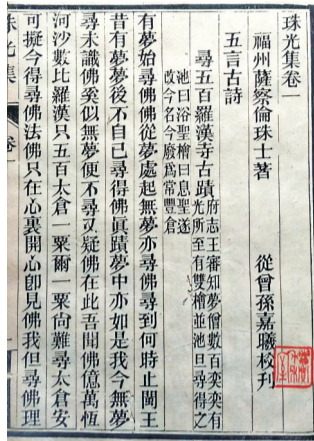 珠光集卷一
福州薩察倫珠士著 從曾孫嘉曦校刊
五言古詩
尋五百羅漢寺古蹟府志王審知夢僧數百奕奕有
光所至有雙檜並池旦尋得之
池曰浴聖檜曰息聖遂
改今名今廢為常豐倉
有夢始尋佛佛從夢處起無夢亦尋佛尋到何時止閩王
昔有夢夢後不自已尋得佛眞蹟夢中亦如是我今無夢
尋未識佛奚似無夢便不尋又疑佛在此吾聞佛億萬恆
河沙數比羅漢只五百太倉一粟爾一粟尙難尋太倉安
可擬今得尋佛法佛只在心裏開心卽見佛我但尋佛理
珠光集 卷一